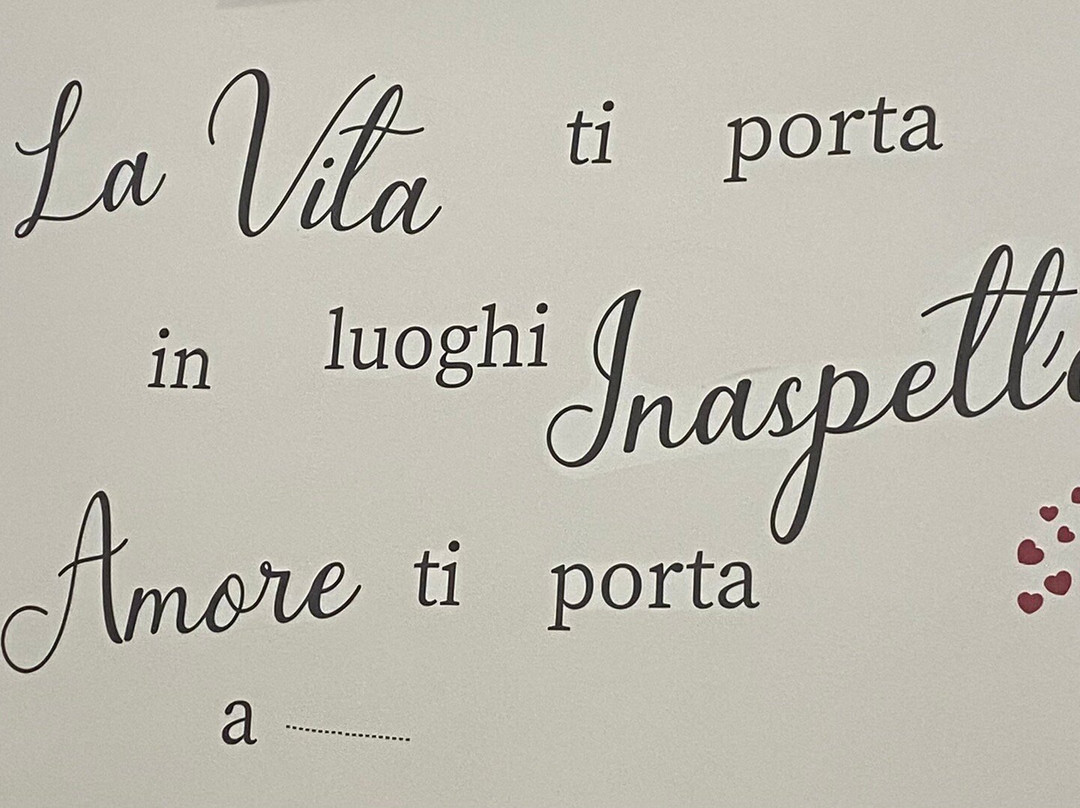 La Vita ti porta
in luoghi Inaspett
Amore ti porta
a ..........